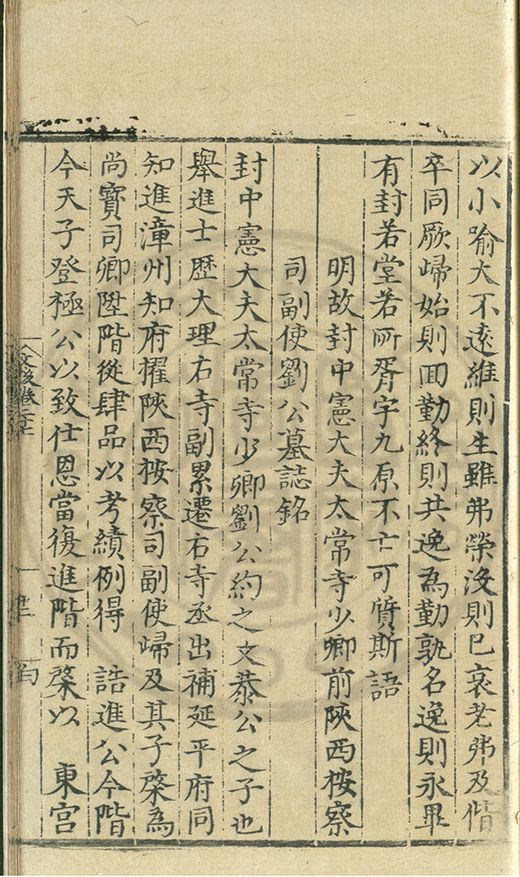 以小喻大不遠維則生雖弗榮沒則已哀老弗及偕
卒同厥歸始則回勤終則共逸為勤孰名逸則永畢
有封若堂若所胥宇九原不亡可質斯語
明故封中憲大夫太常寺少卿前陝西按察
司副使劉公墓誌銘
封中憲大夫太常寺少卿劉公約之文恭公之子也
舉進士歷大理右寺副累遷右寺丞出補延平府同
知進漳州知府擢陝西按察司副使歸及其子棨為
尚寶司卿陞階從肆品以考績例得 誥進公今階
今天子登極公以致仕恩當復進階而棨以 東宮